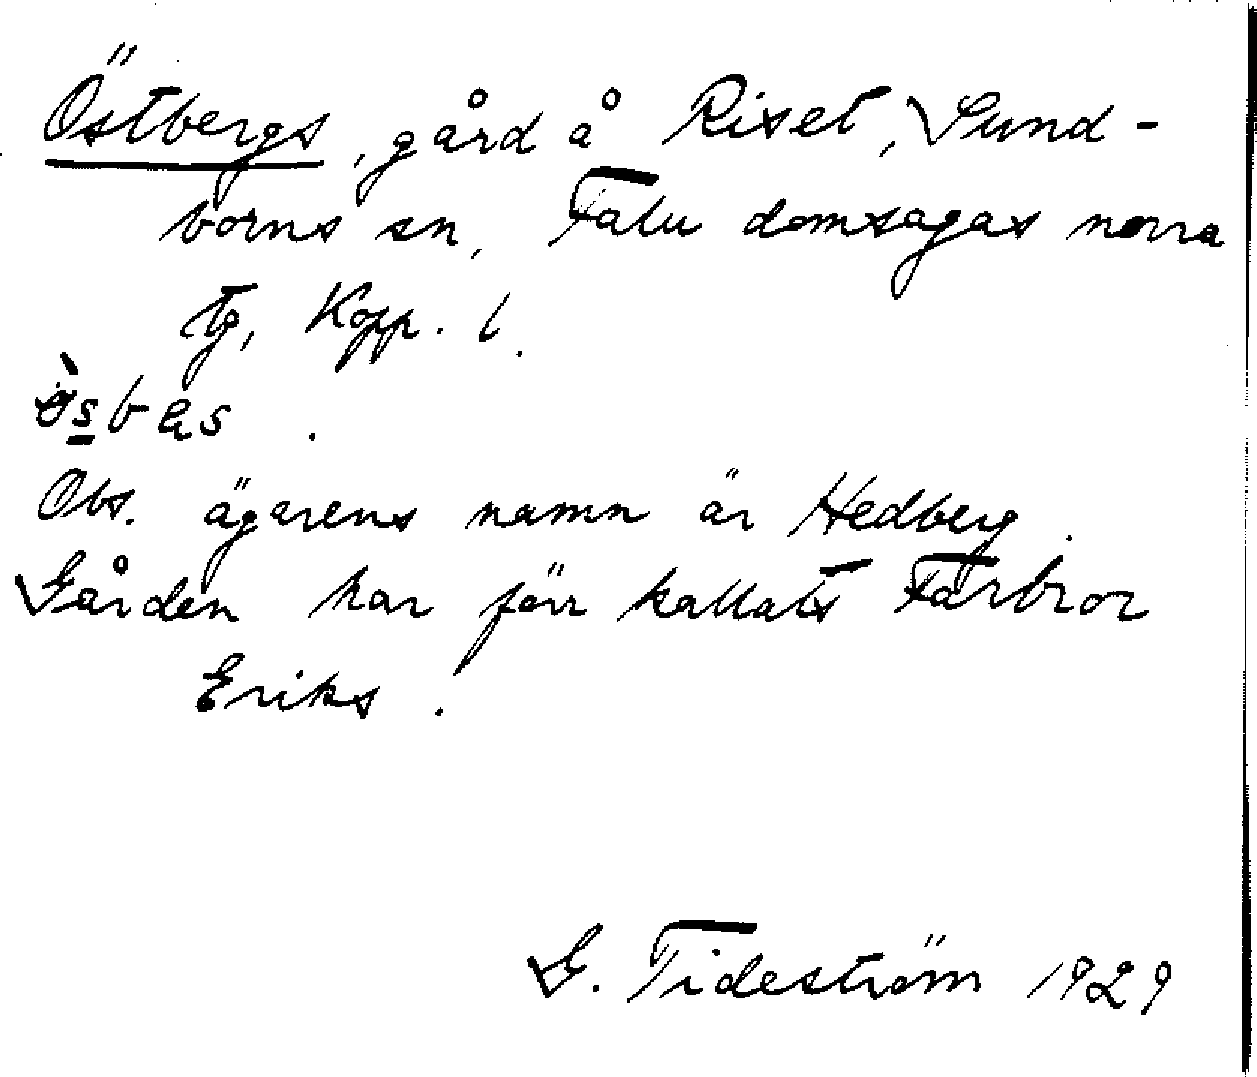 Östbergs, gård å Riset, Sund-
borns sn, Falu domsagas norra
tg, Kopp. l.
Obs. ägarens namn är Hedberg.
Gården har förr kallats Farbror
Eriks.
G. Tideström 1929